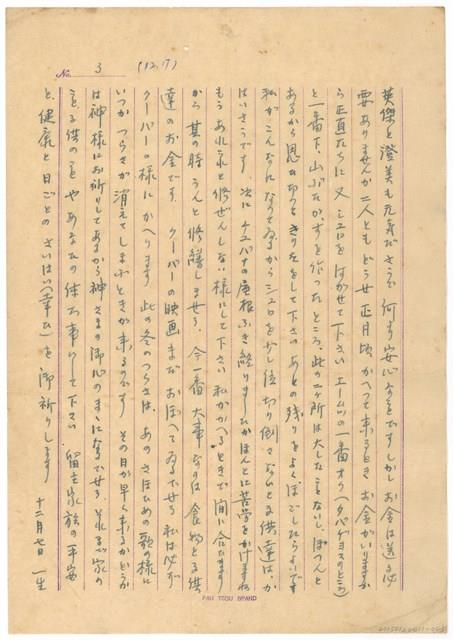 No. 3 (12,17)
英傑と澄美も元気ださうで何より安心なことですしかしお金は送る必
要ありませんか二人ともどうせ正月頃かへつて来るときお金がいりますか
ら正直たちに又シュロをはがせて下さい エームソの一番オク(タバヂョスのとこの)
と一番下、山ぶだうか、すを作つたところ、此の二ヶ所は大したことないし、ぽつんと
あるから思ひ切りときりたをして下さい あとの残りをよくほごしたらよいです
私がこんなになつてゐるからシュロを少し位切り倒さないと子供達は、か
はいさうです。次にケエバナの屋根ふき終りましたかほんとに苦労をかけますね
もうあれ家と修ぜんしない様にして下さい 私がかへるときまで間に合たますか
から其の時うんと修繕しませう、今一番大事なのは食物と子供
達のお金です。 クーパーの映画まだおぼへてゐるでせう 私は必ず
クーパーの様にかへります 此の冬のつらさは、あのさほひめの歌の様に
いつかつらさが消えてしまふときが来るのです その日が早く来るかどうか
は神様にお祈りしてあるから神さまの御心のまゝになるでせう、其れ迄家の
こと子供のことやあなたの体大事にして下さい 留主家族の平安
と、健康と日ごとのさいはい(幸ひ)を御祈りします 十二月七日 一生
PAU TEGU BRAND